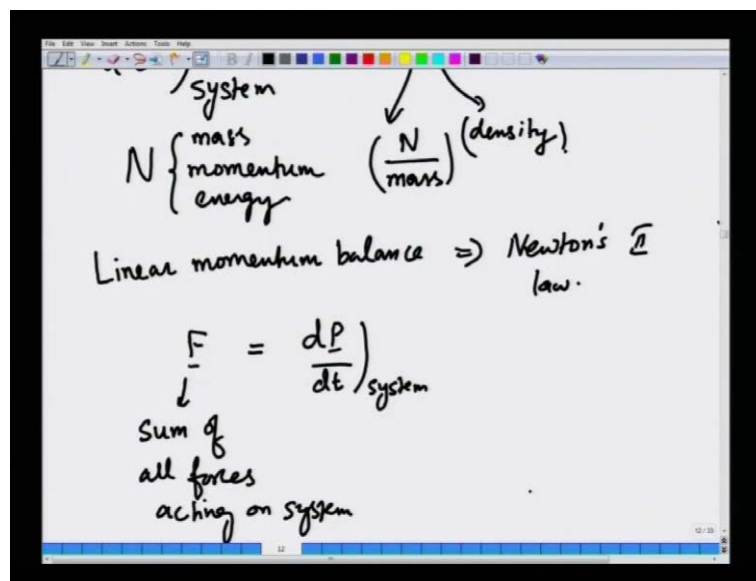 File Edit View Insert Actions Tools Help
system
N { mass momentum energy
(N/mass) (density)
Linear momentum balance ⇒ Newton's II
law.
F = dP/dt)system
sum of
all forces
acting on system
12